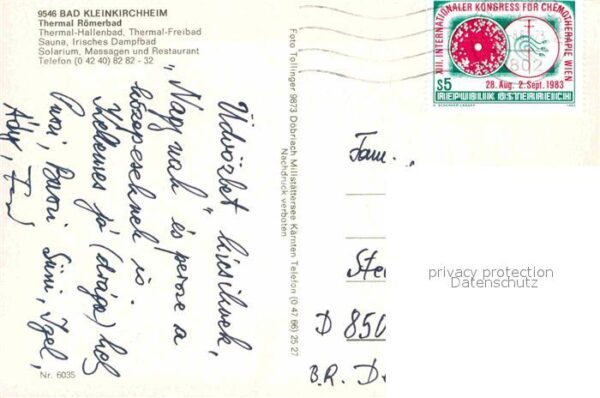 9546 BAD KLEINKIRCHHEIM
Thermal Römerbad
Thermal-Hallenbad, Thermal-Freibad
Sauna, Irisches Dampfbad
Solarium, Massagen und Restaurant
Telefon (0 42 40) 82 82 - 32
Üdvözlet kicsiknek,
"Nagy"-nak és persze a
közepeseknek is.
Kellemes jó (drága) hely
Puszi, Bacsi Süni, Igel,
Nr. 6035
Foto Tollinger 9873 Döbriach Millstättersee Kärnten Telefon (0 47 66) 25 27
Nachdruck verboten
XIII. INTERNATIONALER KONGRESS FÜR CHEMOTHERAPIE WIEN
28. Aug. 2. Sept. 1983
S5
REPUBLIK ÖSTERREICH
Fam.
Ste
D 850
B.R. D
privacy protection
Datenschutz